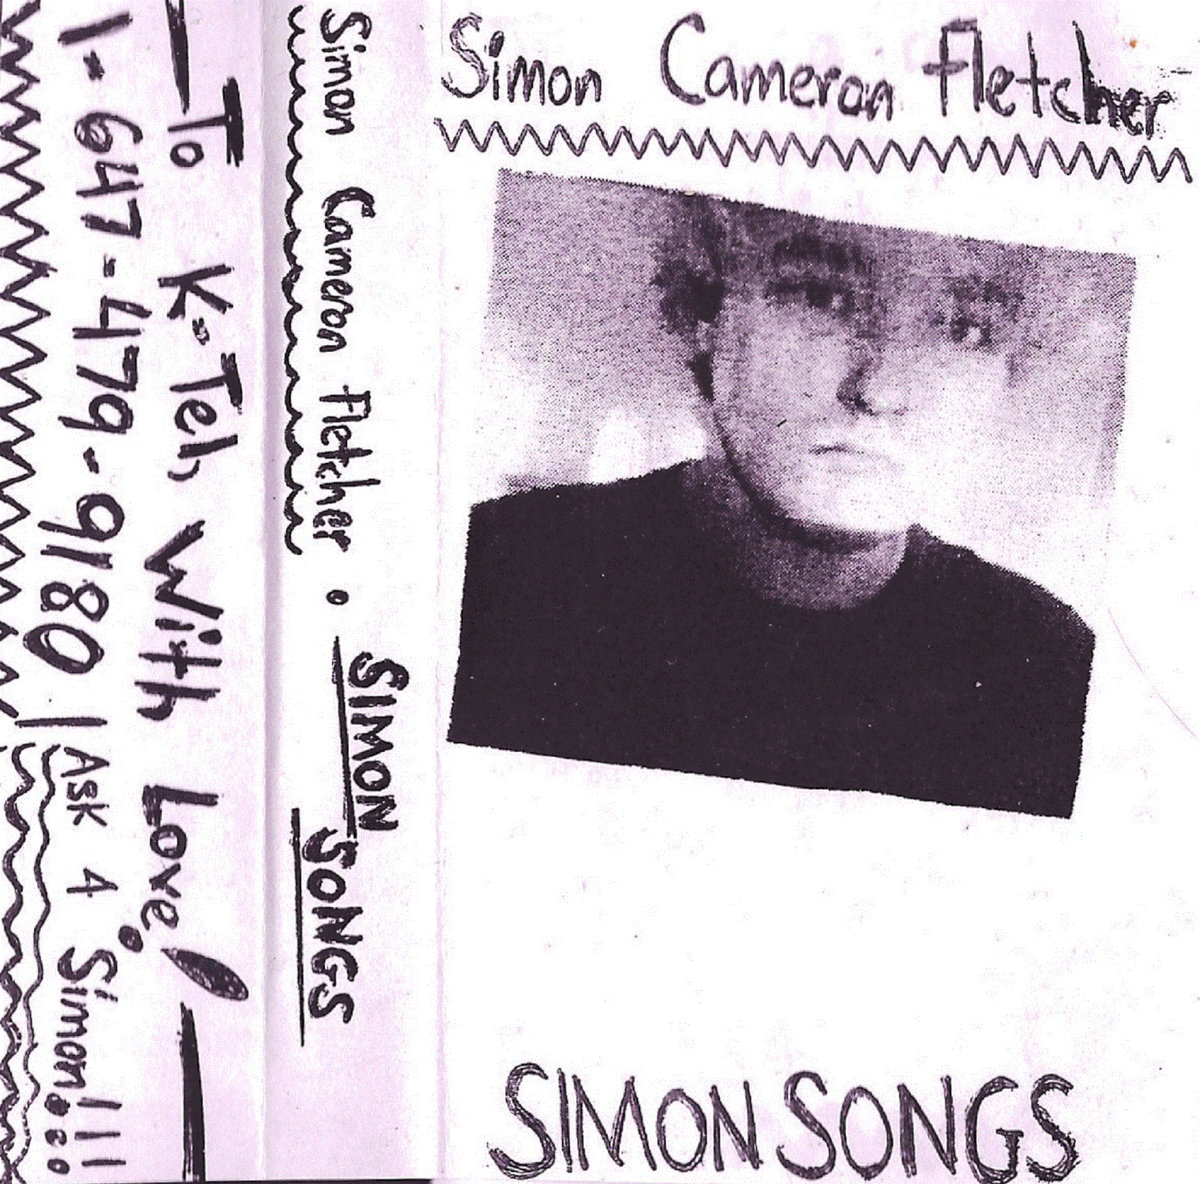 Simon Cameron Fletcher
SIMON SONGS
Simon Cameron Fletcher • SIMON SONGS
To K-Tel, With Love!
1-647-479-9180 | Ask 4 Simon!!!